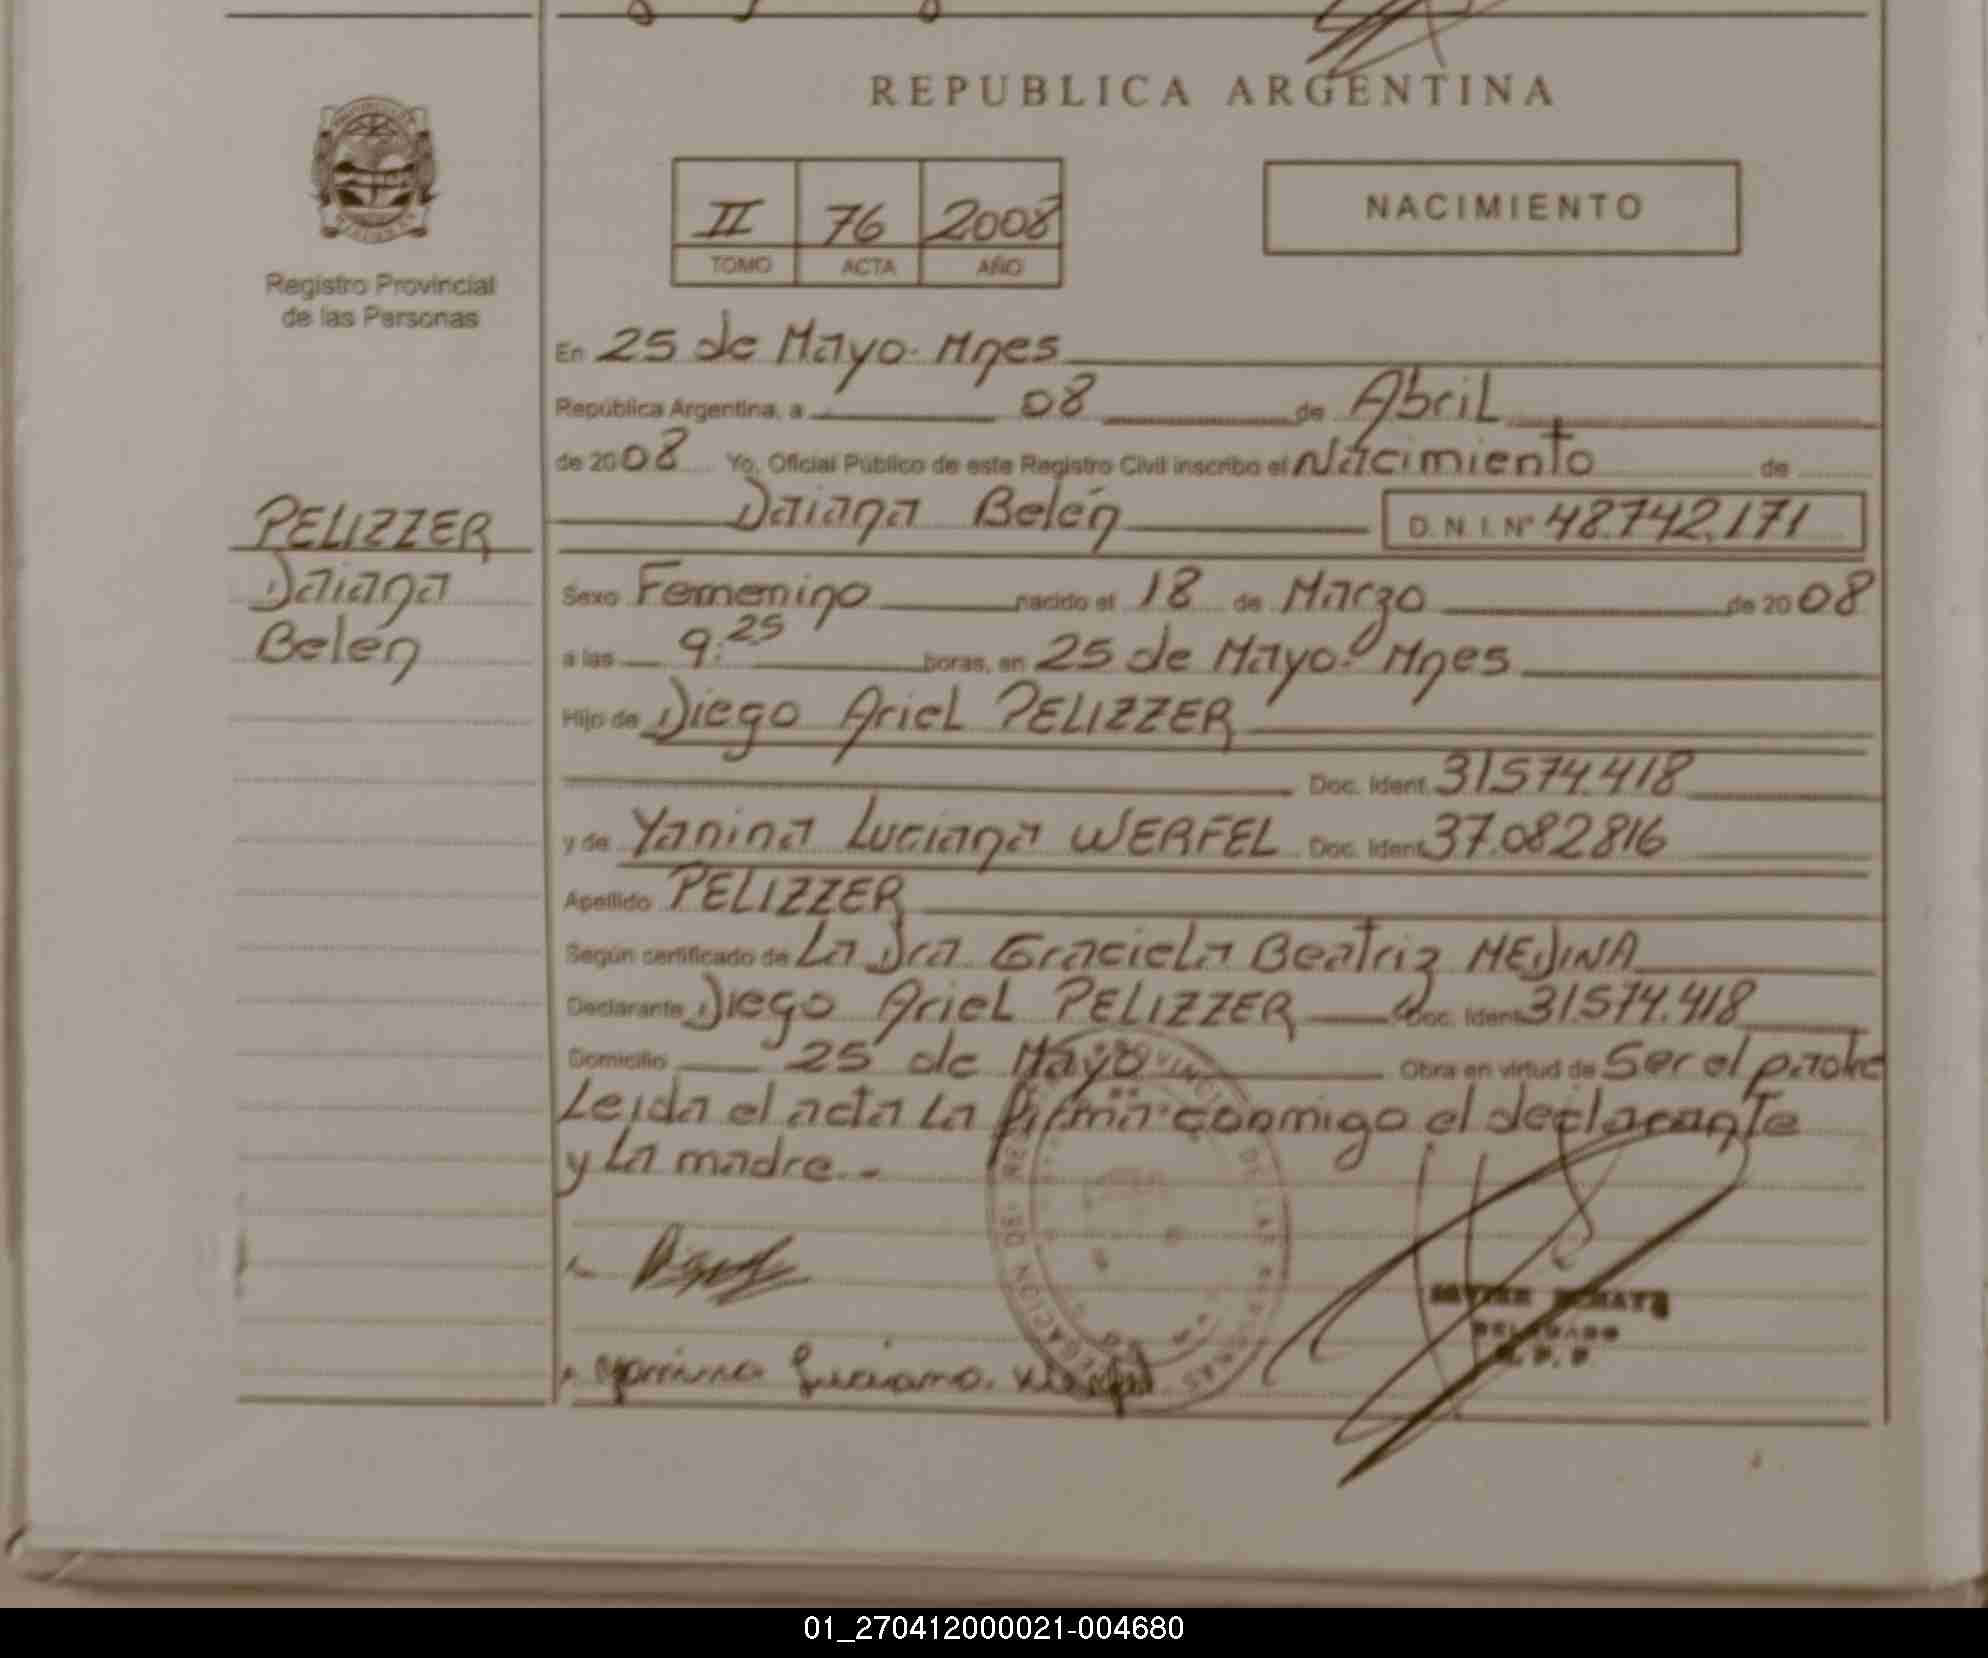 REPUBLICA ARGENTINA
II 76 2008
TOMO ACTA AÑO
NACIMIENTO
Registro Provincial
de las Personas
En 25 de Mayo. Mnes
República Argentina, a 08 de Abril
de 2008 Yo, Oficial Público de este Registro Civil inscribo el Nacimiento de
Daiana Belén D. N. I. Nº 48.742.171
PELIZZER
Daiana
Belén
Sexo Femenino nacido el 18 de Marzo de 2008
a las 9:25 horas, en 25 de Mayo. Mnes
Hijo de Diego Ariel PELIZZER
Doc. Ident. 31.574.418
y de Yanina Luciana WERFEL Doc. Ident. 37.082816
Apellido PELIZZER
Según certificado de La Dra Graciela Beatriz MEDINA
Declarante Diego Ariel PELIZZER Doc. Ident. 31.574.418
Domicilio 25 de Mayo Obra en virtud de Ser el padre
Leida el acta La firma conmigo el declarante
y La madre. -
PROVINCIAL DE LAS PERSONAS
DELEGADO
Luciana
01_270412000021-004680